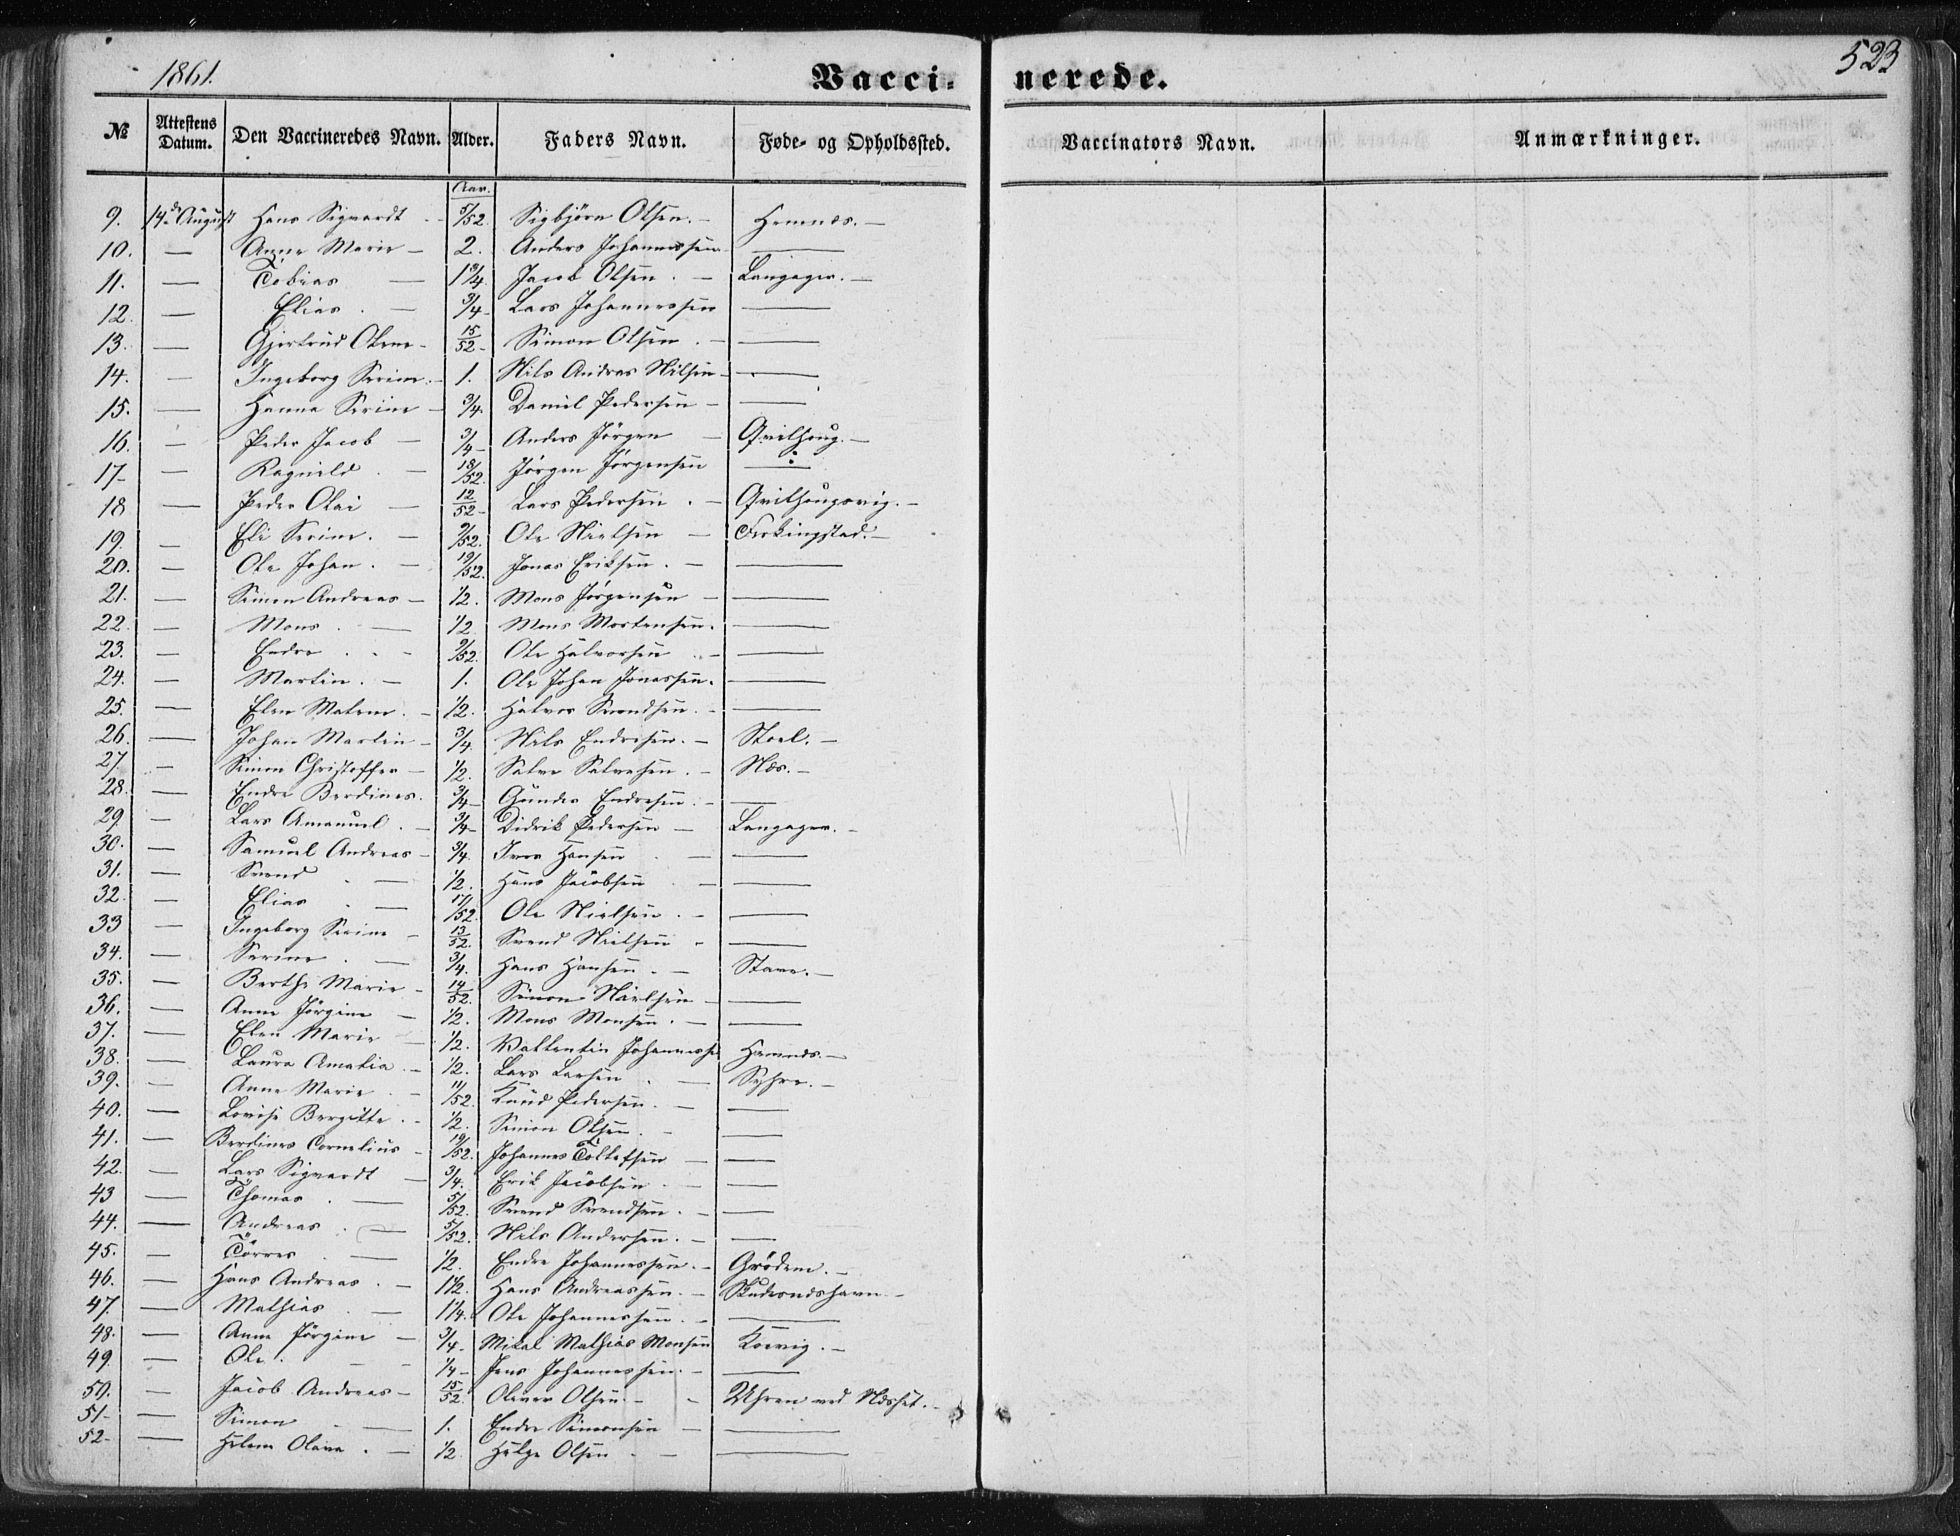 1861.
Vaccinerede.
523
№ | Attestens Datum. | Den Vaccineredes Navn. | Alder. | Faders Navn. | Føde- og Opholdssted. | Vaccinators Navn. | Anmærkninger.
Aar.
9. 14de August Hans Sigvardt - 5/52. Sigbjörn Olsen. - Hemnes. -
10. — Anne Marie - 2. Anders Johannessen — 
11. — Tobias — 1 3/4 Jacob Olsen. - Langager. -
12. — Elias. - 3/4- Lars Johannessen —
13. — Gjertrud Olene - 15/52- Simon Olsen. - —
14. — Ingeborg Serine. - 1. Nils Andreas Nilsen - —
15. — Hanna Serine - 3/4. Daniel Pedersen - —
16. — Peder Jacob — 3/4- Anders Jörgen — Qvilhoug. -
17- — Ragnild. — 18/52. Jörgen Jörgensen —
18 — Peder Olai — 12/52- Lars Pedersen. - Qvilhougsvig. -
19. — Eli Serine. — 9/52. Ole Nielsen — Ferkingstad. -
20. — Ole Johan. — 19/52. Jonas Eriksen. - —
21. — Simon Andreas - 1/2. Mons Jörgensen - —
22. — Mons. — 1/2. Mons Mortensen. —
23. — Endre. - 9/52. Ole Halvorsen. - —
24. — Martin. - 1. Ole Johan Jonassen. —
25. — Elen Malene. - 1/2. Halvor Svendsen. - —
26. — Johan Martin - 3/4. Nils Endresen. - Stoel. -
27. — Simon Christoffer - 1/2. Salve Salvesen. - Næs. -
28. — Endre Berdines. 3/4- Gunder Endresen. - —
29. — Lars Amanuel. - 3/4- Didrik Pedersen - Langager. -
30. — Samuel Andreas - 3/4. Iver Hansen. - —
31. — Svend. — 1/2. Hans Jacobsen. - —
32. — Elias. — 17/52. Ole Nielsen. - —
33 — Ingeborg Serine - 13/52. Svend Nielsen - —
34. — Serine. — 3/4. Hans Hansen. - Stave. -
35. — Berthe Marie - 14/52. Simon Nielsen - —
36. — Anne Jörgine - 1/2. Mons Monsen. - —
37. — Elen Marie — 1/2. Vallentin Johannessen Hemnes. -
38. — Laura Amalia. - 1/2. Lars Larsen. — Syhre. -
39. — Anne Marie. - 11/52. Knud Pedersen. - —
40. — Lovise Bergitte. - 1/2. Simon Olsen. - —
41. — Berdines Cornelius - 19/52. Johannes Tollefsen - —
42. — Lars Sigvardt - 3/4. Erik Jacobsen. - —
43 — Thomas. — 5/52. Svend Svendsen. - —
44. — Andreas. — 5/52. Nils Andersen. - —
45. — Törres. — 1/2. Endre Johannessen. - Grödem. -
46. — Hans Andreas. - 1 1/2. Hans Andreassen. - Skudesnæshavn -
47. — Mathias. — 1 1/4. Ole Johannessen. - —
48. — Anne Jörgine - 3/4- Mikal Mathias Monsen Koevig. -
49. — Ole. - 1/4- Jens Johannessen. - —
50. — Jacob Andreas - 15/52. Oliver Olsen. - Uhren ved Næshet. -
51- — Simon — 1. Endre Simonsen - —
52- — Helene Olava. - 1/2. Helge Olsen - —